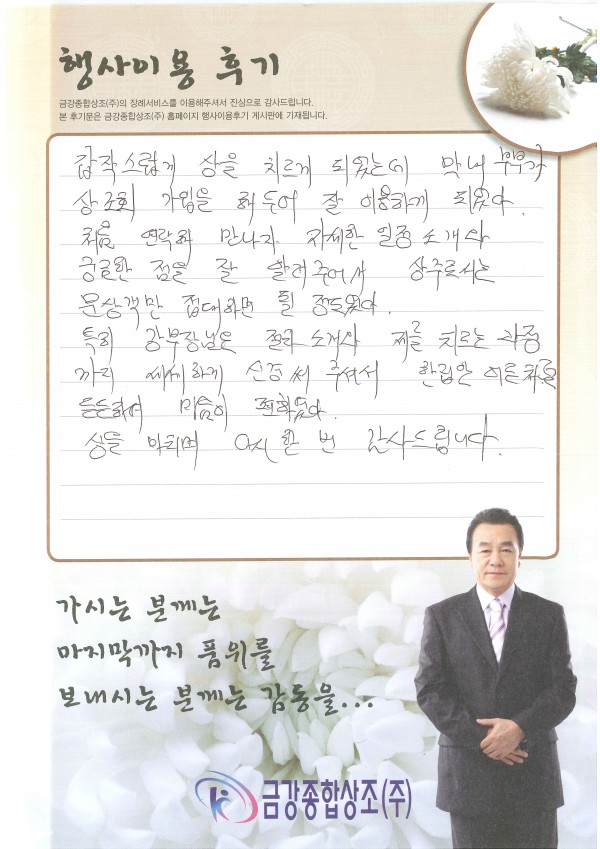 행사이용 후기
금강종합상조(주)의 장례서비스를 이용해주셔서 진심으로 감사드립니다.
본 후기문은 금강종합상조(주) 홈페이지 행사이용후기 게시판에 기재됩니다.
갑작스럽게 상을 치르게 되었는데 막내 부부가
상조회 가입을 해 두어 잘 이용하게 되었다.
처음 연락하 만나자 자세한 일정 소개와
궁금한 점을 잘 알려주어서 상주로서는
문상객만 접대하면 될 정도였다.
특히 강부장님은 절차 소개와 제를 치르는 과정
까지 세세하게 신경 써 주셔서 한편
든든하며 마음이 편하였다.
상을 마치며 다시 한 번 감사드립니다.
가시는 분께는
마지막까지 품위를
보내시는 분께는 감동을...
금강종합상조(주)